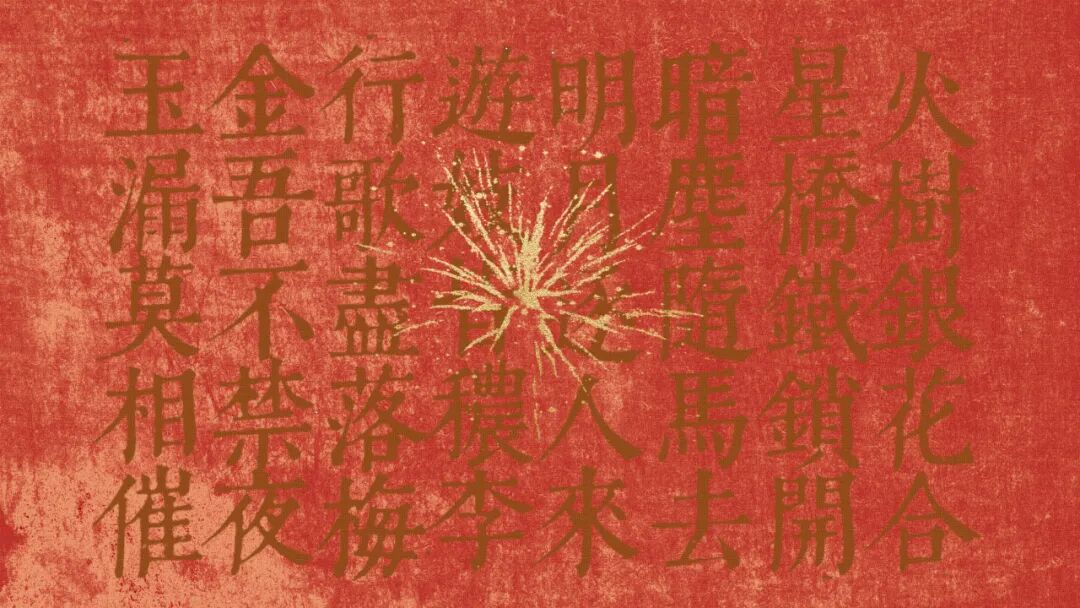 火樹銀花合
星橋鐵鎖開
暗塵隨馬去
明月逐人來
遊皆穠李
行歌盡落梅
金吾不禁夜
玉漏莫相催